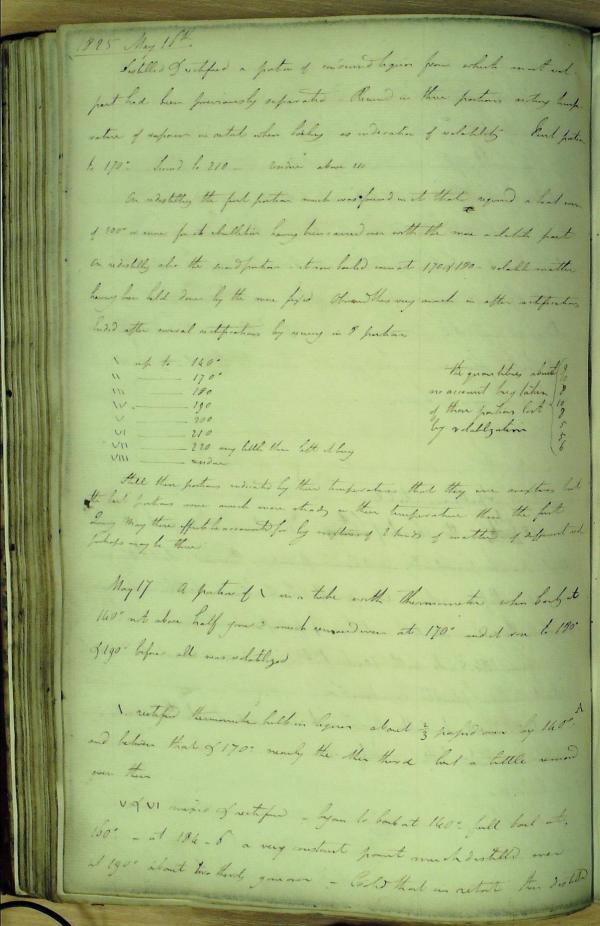 1825 May 16th.
Distilled & rectified a portion of condensed liquor from which most vol.
part had been previously separated. Received in three portions noting temp
erature of vapour in retort when boiling as indication of volatility. First portion
to 170° Second to 210 - residue above 210
On redistilling the first portion much was found in it that required a heat even
of 200° or more for its ebullition having been carried over with the more volatile part
On redistilling also the second portion - it now boiled even at 170 & 180 - volatile matter
having been held down by the more fixed. Observed this very much in after rectifications
Ended after several rectifications by having in 8 portions
I up to 140°
II ——— 170°
III ——— 180
IV ——— 190
V ——— 200
VI ——— 210
VII ——— 220 very little then left
VIII ——— residue
the quantities about
no account being taken
of those portions lost
by volatilization
9
10
8
10
8
5
5
6
Still these portions indicated by their temperatures that they were mixtures but
the last portions were much more steady in their temperature than the first
May these effects be accounted for by mixture of 2 kinds of matter of different vol.
perhaps may be three
May 17 A portion of I in a tube with thermometer when boiling at
140° not above half gone & much remained even at 170° and it rose to 180
& 190° before all was volatilized
I rectified thermometer bulb in liquor about 2/3 passed over by 140° A
and between that & 170° nearly the other third but a little remained
even then
V & VI mixed & rectified - began to boil at 140° full boil at
160° - at 184 - 6 a very constant point much distilled over
at 190° about two thirds gone over - Cooled that in retort then distilled